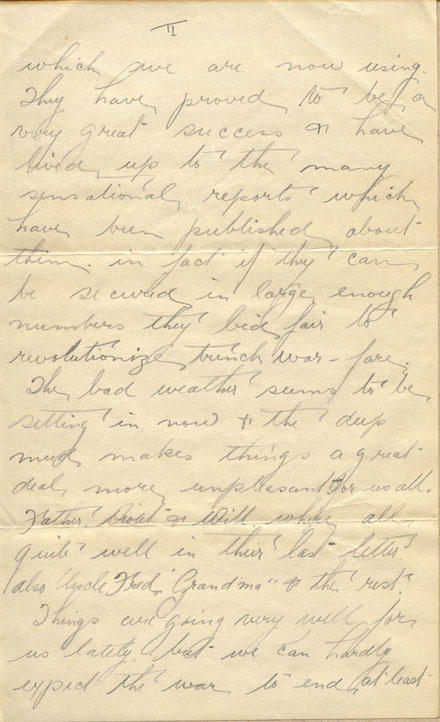 II
which we are now using.
They have proved to be a
very great success & have
lived up to the many
sensational reports which
have been published about
them. in fact if they can
be secured in large enough
numbers they bid fair to
revolutionize trench war-fare.
The bad weather seems to be
setting in now & the deep
mud makes things a great
deal more unpleasant for us all.
Father & Will where all
quite well in their last letter
also Uncle Fred, Grandma & the rest.
Things are going very well for
us lately but we can hardly
expect the war to end, at least